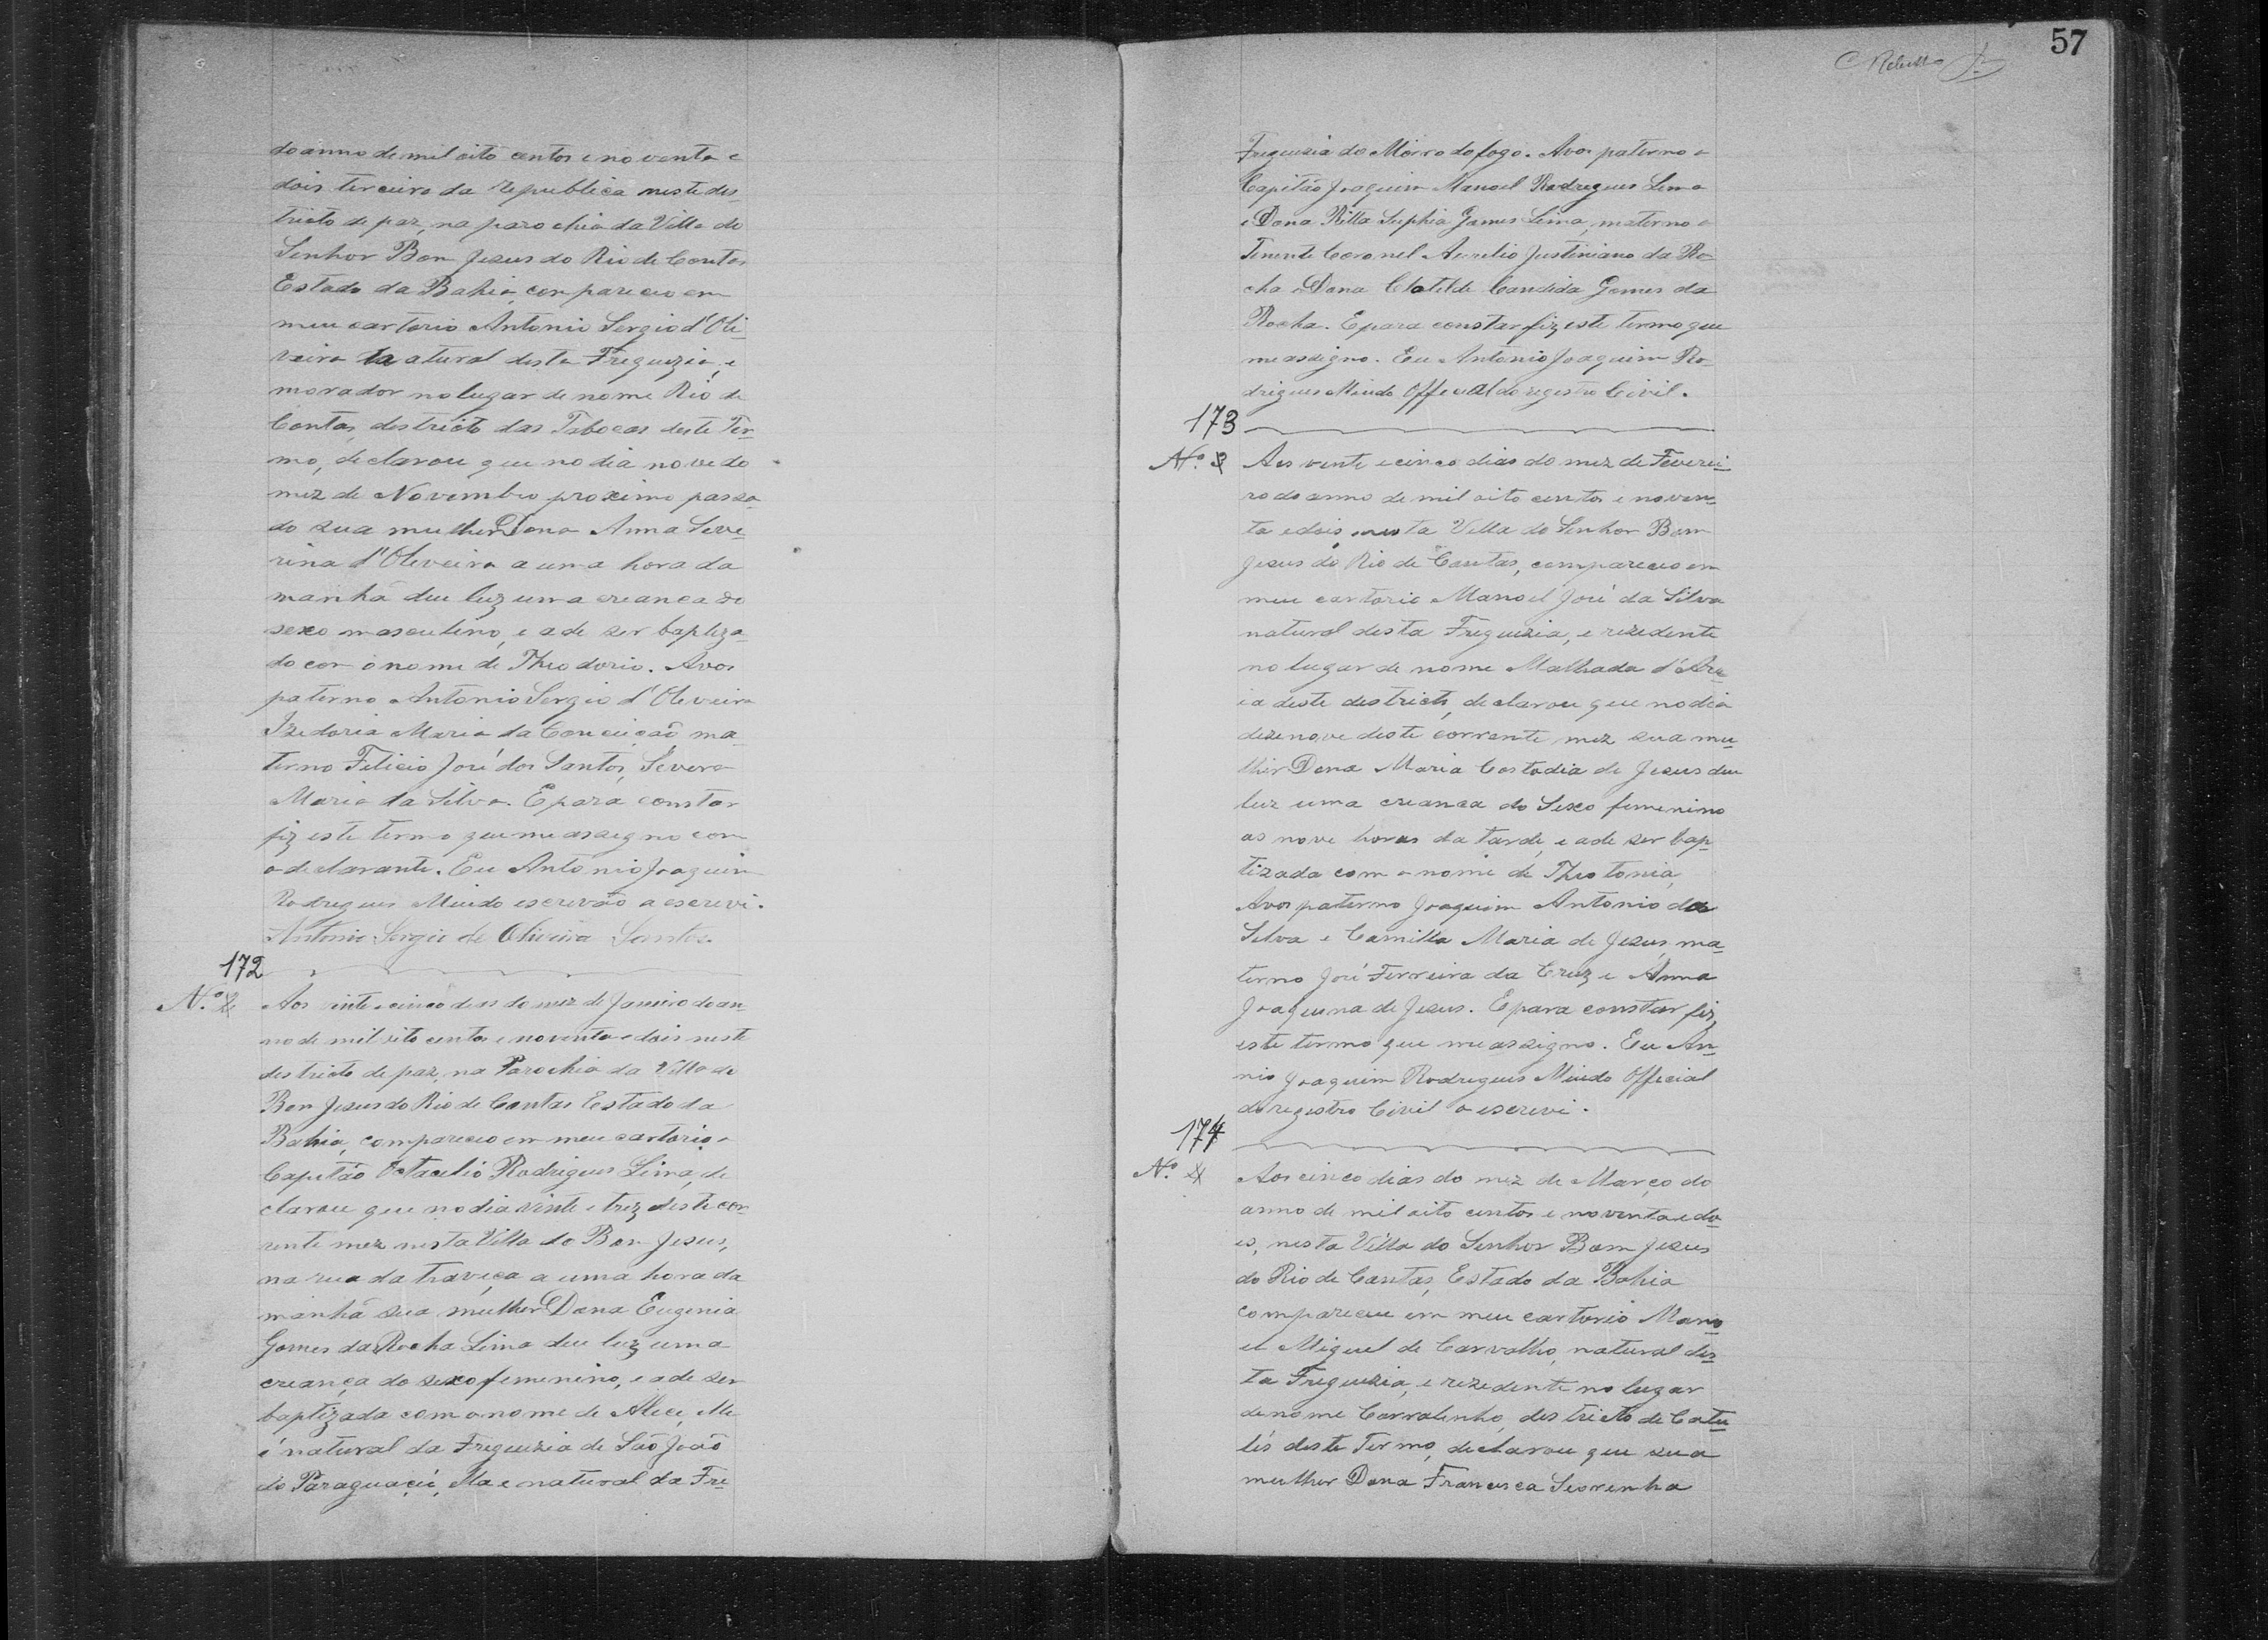 do anno de mil oito centos e noventa e
dois terceiro da republica neste des
tricto de paz, na parochia da Villa do
Senhor Bom Jesus do Rio de Contas
Estado da Bahia, compareceo em
meu cartorio Antonio Sergio d'Oli
veira natural desta Freguezia, e
morador no lugar de nome Rio de
Contas, destricto das Tabocas deste Ter
mo, declarou que no dia nove do
mez de Novembro proximo passa
do sua mulher Dona Anna Seve
rina d'Oliveira a uma hora da
manhã deu luz uma creanca do
sexo masculino, e a de ser baptiza
do com o nome de Theodorio. Avos
paterno Antonio Sergio d'Oliveira
Izedoria Maria da Conceição ma
terno Felicio José dos Santos, Severa
Maria da Silva. E para constar
fiz este termo que me assegno com
o declarante. Eu Antonio Joaquim
Rodrigues Miudo escrevão a escrevi.
Antonio Sergio de Oliveira Santos.
172
N.º 2 Aos vinte e cinco dias do mez de Janeiro do an
no de mil oito centos e noventa e dois neste
destricto de paz, na Parochia da Villa do
Bom Jesus do Rio de Contas Estado da
Bahia, compareceo em meu cartorio o
Capitão Octacilio Rodrigues Lima, de
clarou que no dia vinte e trez deste cor
rente mez nesta Villa do Bom Jesus,
na rua da traveça a uma hora da
manhã sua mulher Dona Eugenia
Gomes da Rocha Lima deu luz uma
creança do sexo femenino, e a de ser
baptizada com o nome de Alice, Elle
é natural da Freguizia de São João
do Paraguaçú, Ella e natural da Fre
57
Freguizia do Morro do fogo. Avos paterno o
Capitão Joaquim Manoel Rodrigues Lima
e Dona Ritta Suphia Gomes Lima, materno o
Tenente Coronel Aurelio Justiniano da Ro
cha e Dona Clotilde Candida Gomes da
Rocha. E para constar fiz este termo que
me assigno. Eu Antonio Joaquim Ro
drigues Miudo Official do regestro Civil.
173
N.º 3 Aos vente e cinco dias do mez de Feverei
ro do anno de mil oito centos e noven
ta e dois nesta Villa do Senhor Bom
Jesus do Rio de Contas, compareceo em
meu cartorio Manoel José da Silva
natural desta Freguezia, e rezedente
no lugar de nome Malhada d'Are
ia deste destricto, declarou que no dia
dezenove deste corrente mez sua mu
lher Dona Maria Costodia de Jesus deu
luz uma creanca do Sexo femenino
as nove horas da tarde, e a de ser bap
tizada com o nome de Theotonia,
Avos paterno Joaquim Antonio da
Silva e Camilla Maria de Jesus, ma
terno José Ferreira da Cruz e Anna
Joaquina de Jesus. E para constar fiz
este termo que me assigno. Eu An
nio Joaquim Rodrigues Miudo Official
do regestro Civil o escrevi.
174
N.º 4 Aos cinco dias do mez de Março do
anno de mil oito centos e noventa e do
is, nesta Villa do Senhor Bom Jesus
do Rio de Contas, Estado da Bahia
compareceu em meu cartorio Mano
el Miguel de Carvalho, natural des
ta Freguizia, e rezedente no lugar
de nome Corralinho, destricto de Catu
lés deste Termo, declarou que sua
mulher Dona Francisca